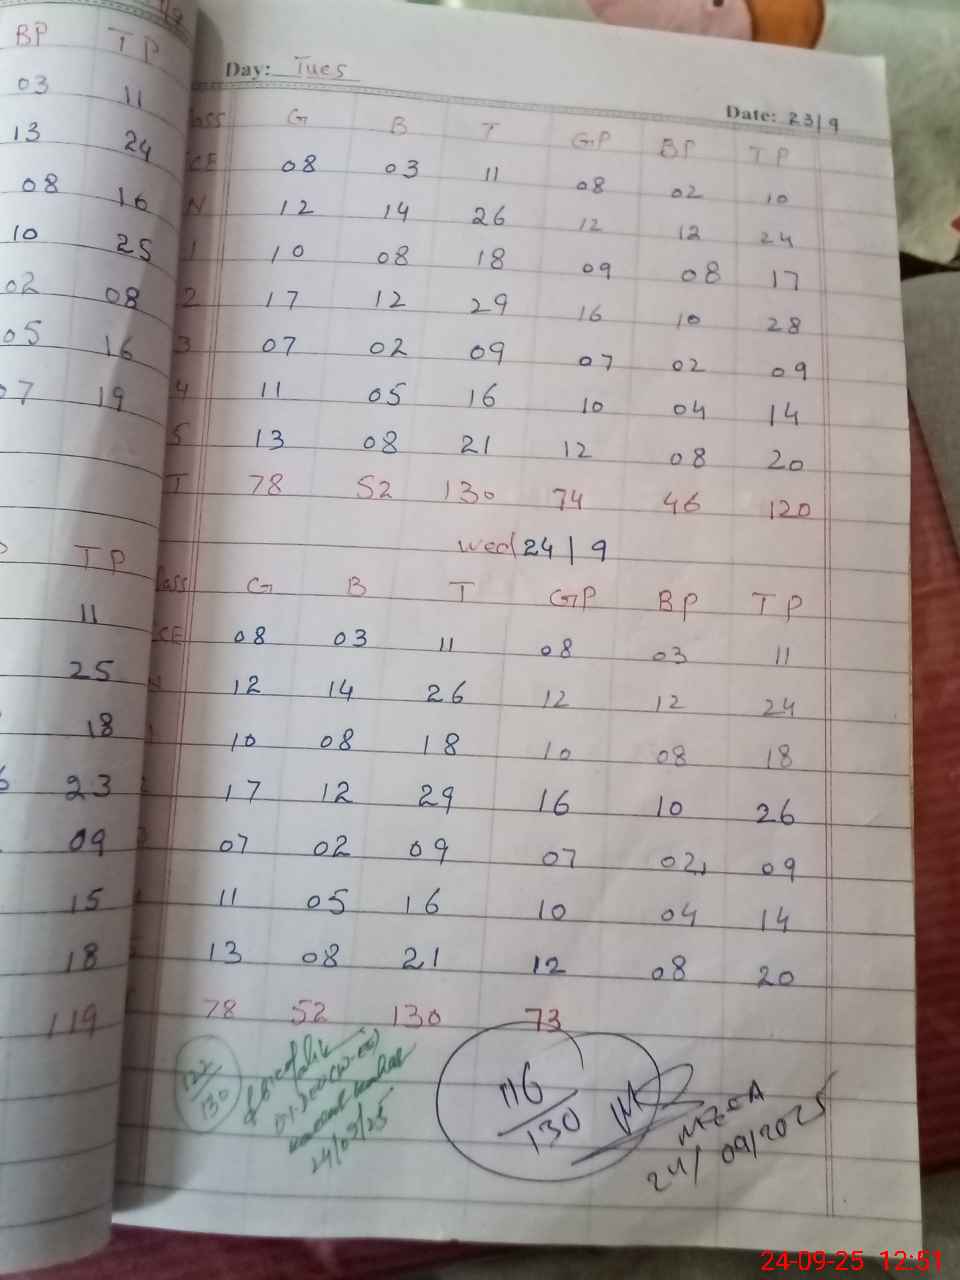 BP TP
03 11
13 24
08 16
10 25
02 08
05 16
07 19
TP
11
25
18
23
09
15
18
119
Day: Tues
Date: 23/9
G B T GP BP TP
CE 08 03 11 08 02 10
N 12 14 26 12 12 24
1 10 08 18 09 08 17
2 17 12 29 16 10 28
3 07 02 09 07 02 09
4 11 05 16 10 04 14
5 13 08 21 12 08 20
T 78 52 130 74 46 120
Wed 24/9
G B T GP BP TP
CE 08 03 11 08 03 11
12 14 26 12 12 24
10 08 18 10 08 18
17 12 29 16 10 26
07 02 09 07 02 09
11 05 16 10 04 14
13 08 21 12 08 20
78 52 130 73
122/130
24/09/25
116/130
24/09/2025
24-09-25 12:51